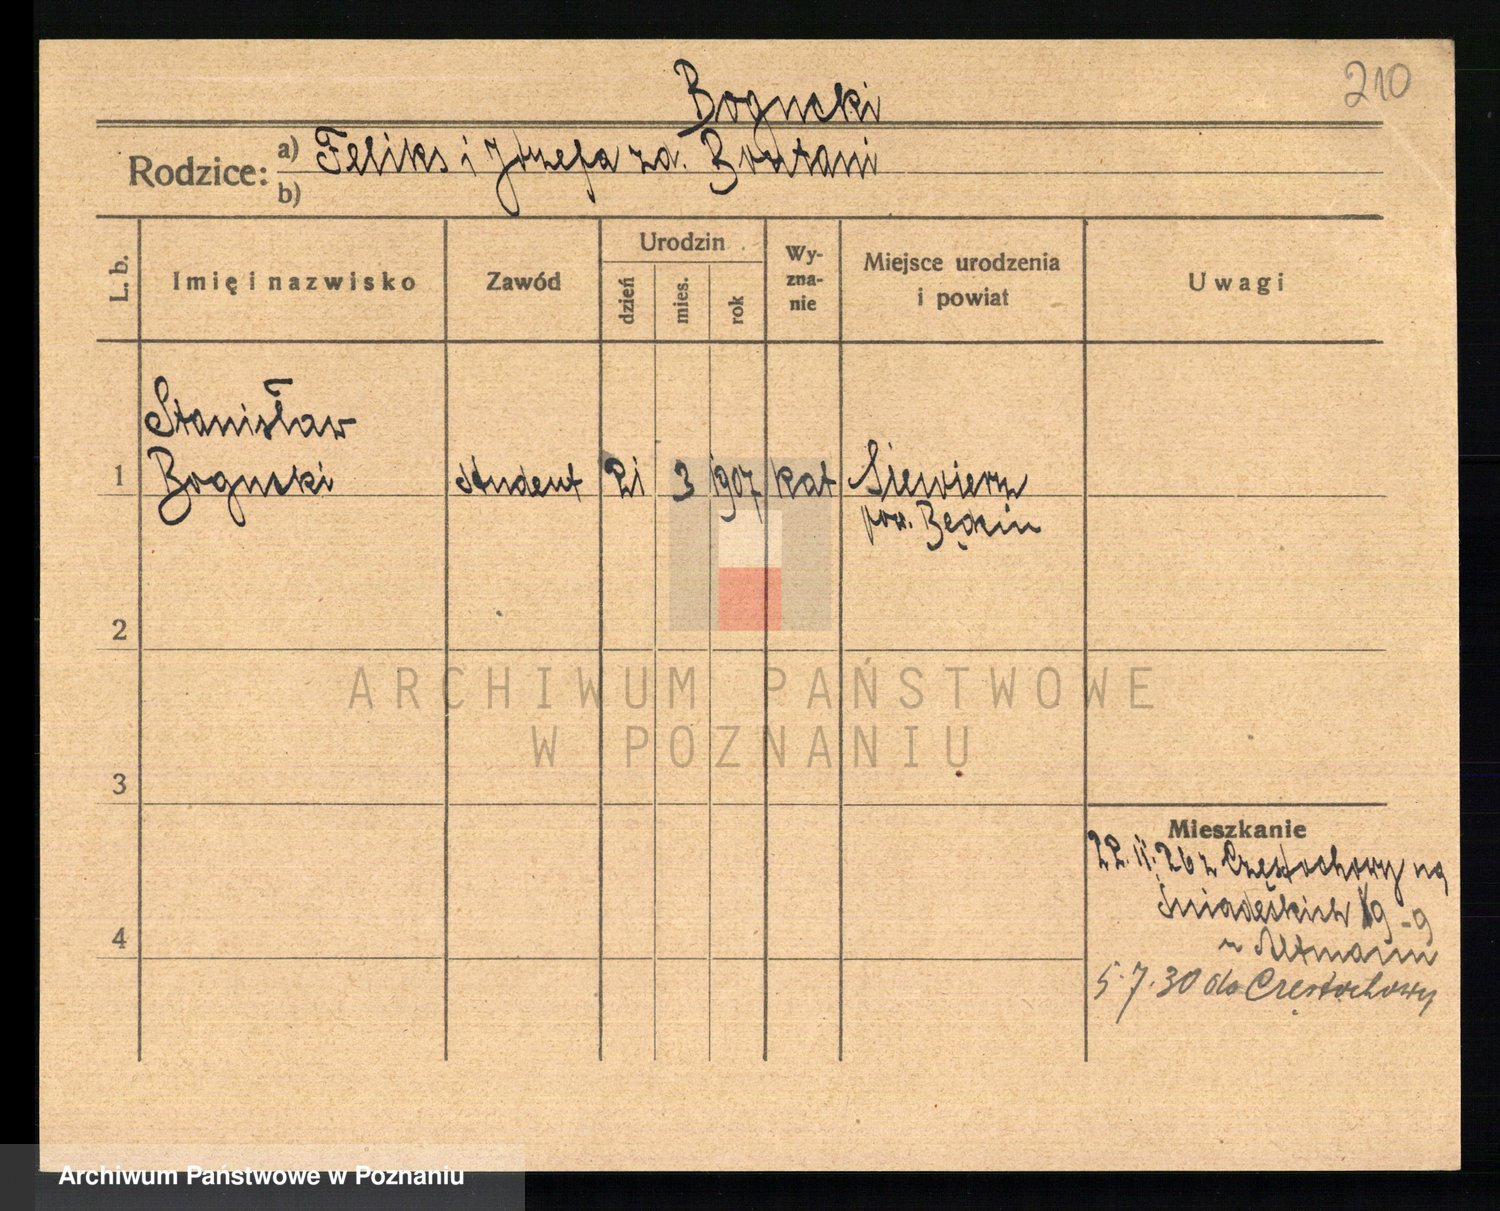 210
Bogucki
Rodzice: a) Feliks i Józefa zd.
b)
L. b. Imię i nazwisko Zawód Urodzin dzień mies. rok Wy-zna-nie Miejsce urodzenia i powiat Uwagi
Stanisław
1 Bogucki student 21 3 1907 kat Siewierz
pow. Będzin
2
ARCHIWUM PAŃSTWOWE
W POZNANIU
3
Mieszkanie
22. 11. 26 z Częstochowy na
4 Śniadeckich 9
Altmann
5.7.30 do Częstochowy
Archiwum Państwowe w Poznaniu